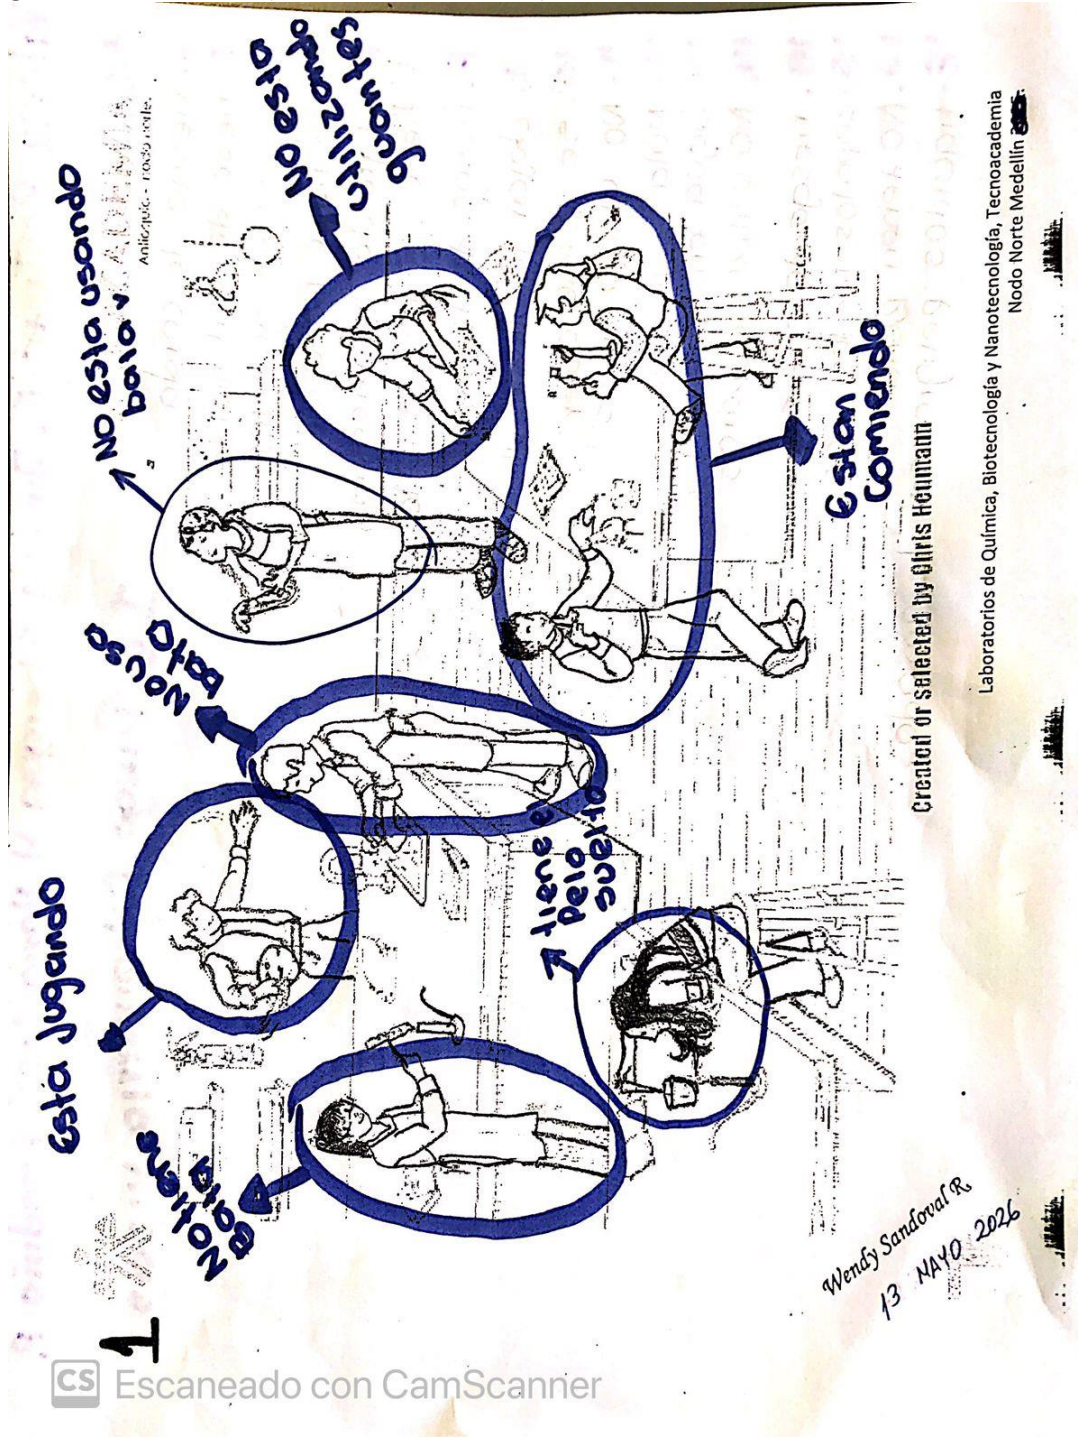 1
Esta Jugando
No tiene
Bata
No usa
bata
No esta usando
bata y
No esta
utilizando
guantes
Antioquia - nodo norte.
tiene e
Pelo
suelto
Estan
comiendo
Created or selected by Chris Heumann
Laboratorios de Química, Biotecnología y Nanotecnología, Tecnoacademia
Nodo Norte Medellín
Wendy Sandoval R.
13 MAYO 2026
CS Escaneado con CamScanner